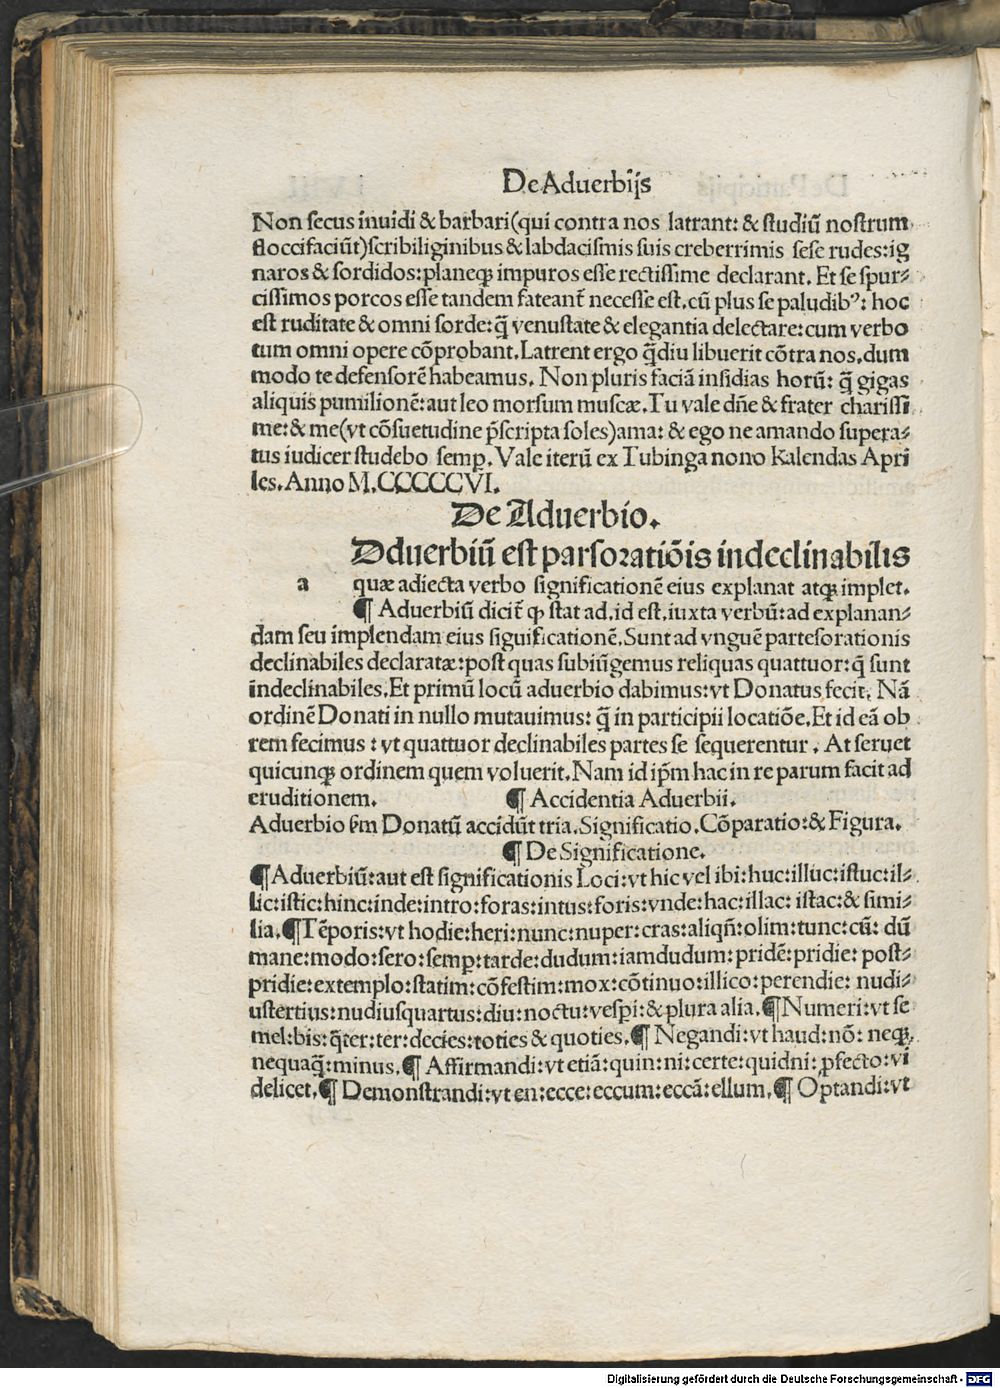 De Aduerbijs
Non secus inuidi & barbari(qui contra nos latrant: & studiū nostrum
floccifaciūt)scribiliginibus & labdacismis suis creberrimis sese rudes:ig
naros & sordidos:planeqꝫ impuros esse rectissime declarant. Et se spur⸗
cissimos porcos esse tandem fateant̄ necesse est.cū plus se paludibꝰ: hoc
est ruditate & omni sorde:q̄ venustate & elegantia delectare:cum verbo
tum omni opere cōprobant.Latrent ergo q̄diu libuerit cōtra nos.dum
modo te defensorē habeamus. Non pluris faciā insidias horū: q̄ gigas
aliquis pumilionē:aut leo morsum muscæ.Tu vale dn̄e & frater charissi
me:& me(vt cōsuetudine p̄scripta soles)ama: & ego ne amando supera⸗
tus iudicer studebo semꝑ. Vale iterū ex Tubinga nono Kalendas Apri
les.Anno M.CCCCCVI.
De Aduerbio.
Dduerbiū est parsoratiōis indeclinabilis
a quæ adiecta verbo significationē eius explanat atqꝫ implet.
¶ Aduerbiū dicit̄ ꝙ stat ad.id est.iuxta verbū:ad explanan⸗
dam seu implendam eius siguificationē.Sunt ad vnguē partesorationis
declinabiles declaratæ:post quas subiūgemus reliquas quattuor:q̄ sunt
indeclinabiles.Et primū locū aduerbio dabimus:vt Donatus fecit. Nā
ordinē Donati in nullo mutauimus: q̄ in participii locatiōe.Et id eā ob
rem fecimus : vt quattuor declinabiles partes se sequerentur . At seruet
quicunqꝫ ordinem quem voluerit.Nam id ip̄m hac in re parum facit ad
eruditionem. ¶ Accidentia Aduerbii.
Aduerbio ẜm Donatū accidūt tria.Significatio.Cōparatio:& Figura.
¶ De Significatione.
¶Aduerbiū:aut est significationis Loci:vt hic vel ibi:huc:illuc:istuc:il⸗
lic:istic:hinc:inde:intro:foras:intus:foris:vnde:hac:illac: istac:& simi⸗
lia.¶Tēporis:vt hodie:heri:nunc:nuper:cras:aliqn̄:olim:tunc:cū: dū
mane:modo:sero:semꝑ:tarde:dudum:iamdudum:pridē:pridie: post⸗
pridie:extemplo:statim:cōfestim:mox:cōtinuo:illico:perendie: nudi⸗
ustertius:nudiusquartus:diu:noctu:vesꝑi:& plura alia.¶Numeri:vt se
mel:bis:q̄ter:ter:decies:toties & quoties.¶ Negandi:vt haud:nō: neqꝫ
nequaq̄:minus.¶ Affirmandi:vt etiā:quin:ni:certe:quidni:ꝓfecto:vi
delicet.¶ Demonstrandi:vt en:ecce:eccum:eccā:ellum.¶ Optandi:vt
Digitalisierung gefördert durch die Deutsche Forschungsgemeinschaft - DFG